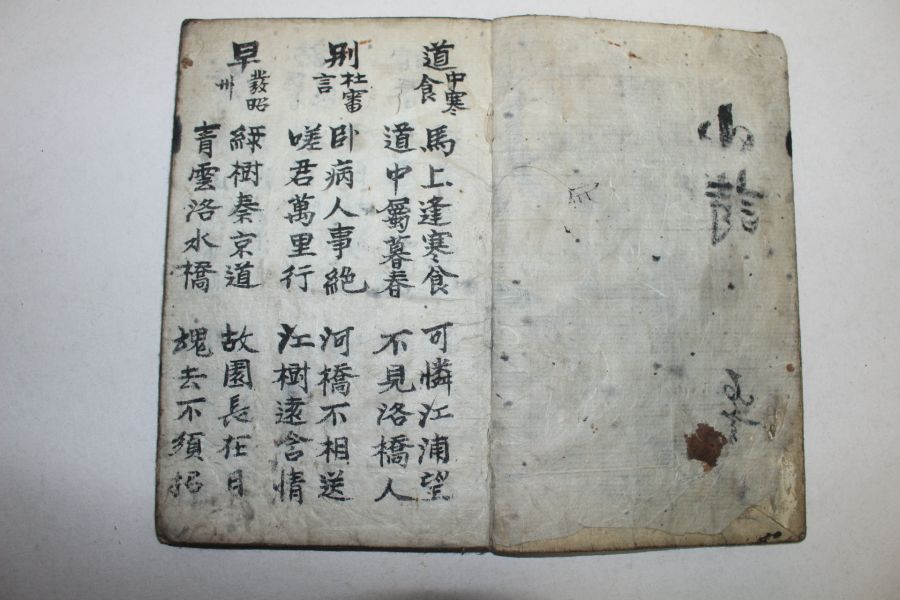 道中寒食
馬上逢寒食 可憐江浦望
道中屬暮春 不見洛橋人
別杜審言
卧病人事絶 河橋不相送
嗟君萬里行 江樹遠含情
早發昭州
綠樹秦京道 故園長在目
青雲洛水橋 魂去不須招